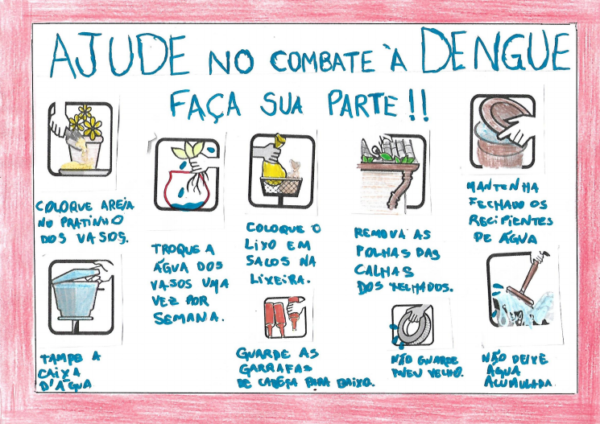 AJUDE NO COMBATE À DENGUE
FAÇA SUA PARTE!!
COLOQUE AREIA
NO PRATINHO
DOS VASOS.
TROQUE A
ÁGUA DOS
VASOS UMA
VEZ POR
SEMANA.
COLOQUE O
LIXO EM
SACOS NA
LIXEIRA.
REMOVA AS
FOLHAS DAS
CALHAS
DOS TELHADOS.
MANTENHA
FECHADO OS
RECIPIENTES
DE ÁGUA
TAMPE A
CAIXA
D'ÁGUA
GUARDE AS
GARRAFAS
DE CABEÇA PARA BAIXO.
NÃO GUARDE
PNEU VELHO.
NÃO DEIXE
ÁGUA
ACUMULADA